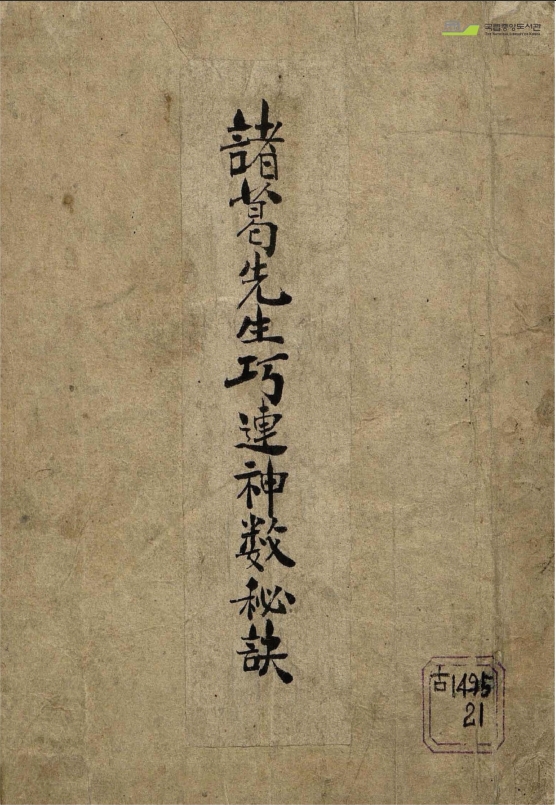 국립중앙도서관
諸葛先生巧連神数秘訣
古1495
21